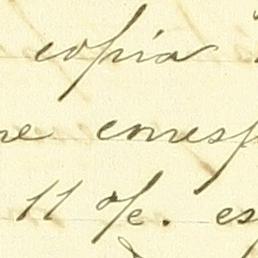 copia
ne corresp
11 %. es